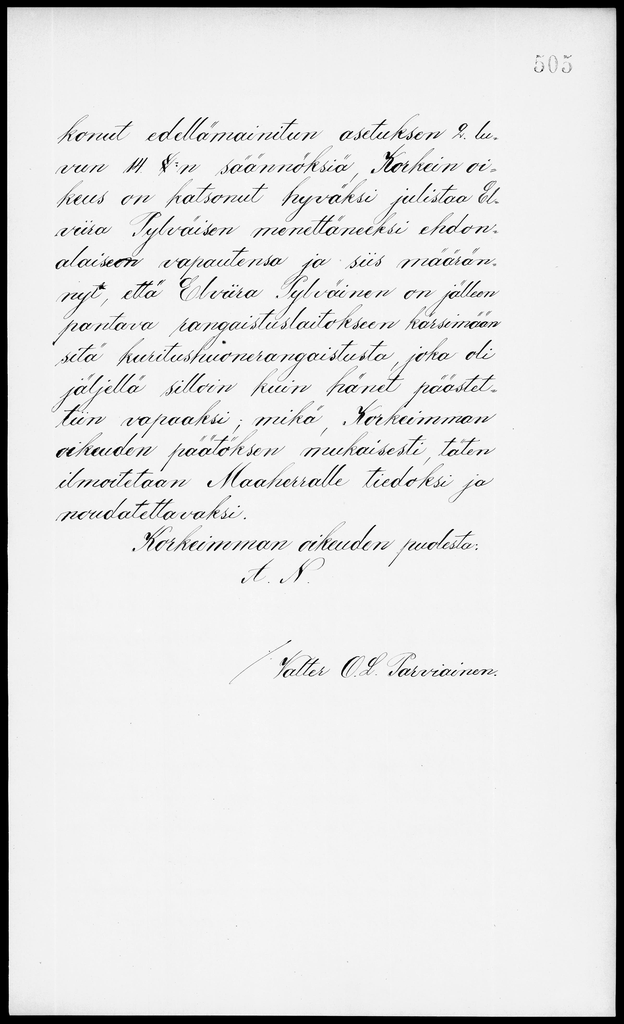 505
konut edellämainitun asetuksen 2. lu-
vun 14 §:n säännöksiä, Korkein oi-
keus on katsonut hyväksi julistaa El-
viira Pylväisen menettäneeksi ehdon-
alaiseen vapautensa ja siis määrän-
nyt, että Elviira Pylväinen on jälleen
pantava rangaistuslaitokseen kärsimään
sitä kuritushuonerangaistusta, joka oli
jäljellä silloin kuin hänet päästet-
tiin vapaaksi; mikä, Korkeimman
oikeuden päätöksen mukaisesti, täten
ilmoitetaan Maaherralle tiedoksi ja
noudatettavaksi.
Korkeimman oikeuden puolesta:
A. N.
/ Valter O.L. Parviainen.